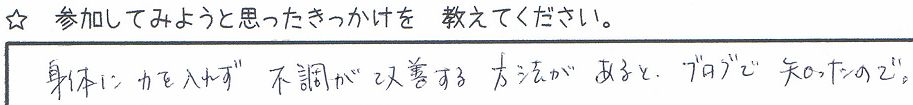 ☆ 参加してみようと思ったきっかけを 教えてください。
身体に力を入れず 不調が改善する 方法が あると、ブログで 知ったので。